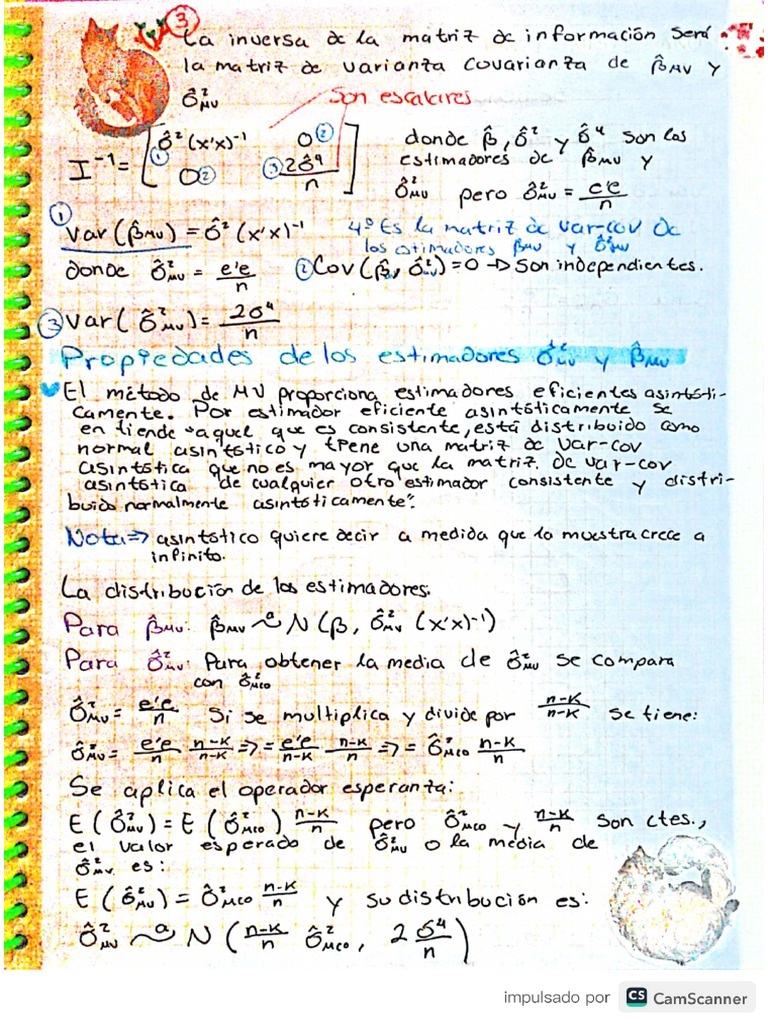 ③
La inversa de la matriz de información será
la matriz de varianza covarianza de β̂MV y
σ̂²MV
Son escalares
I⁻¹ = [ σ̂²(x'x)⁻¹ ① 0 ② ; 0 ② ③ 2σ̂⁴/n ]
donde β̂, σ̂² y σ̂⁴ son los
estimadores de β̂MV y
σ̂²MV pero σ̂²MV = e'e/n
① Var(β̂MV) = σ̂²(x'x)⁻¹
4º Es la matriz de var-cov de
los estimadores β̂MV y σ̂²MV
donde σ̂²MV = e'e/n ② Cov(β̂, σ̂²MV) = 0 → Son independientes.
③ Var(σ̂²MV) = 2σ⁴/n
Propiedades de los estimadores σ̂²MV y β̂MV
El método de MV proporciona estimadores eficientes asintóti-
camente. Por estimador eficiente asintóticamente se
entiende "aquel que es consistente, está distribuido como
normal asintótico y tiene una matriz de var-cov
asintótica que no es mayor que la matriz de var-cov
asintótica de cualquier otro estimador consistente y distri-
buido normalmente asintóticamente".
Nota => asintótico quiere decir a medida que la muestra crece a
infinito.
La distribución de los estimadores.
Para β̂MV: β̂MV ~ᵃ N(β, σ̂²MV (x'x)⁻¹)
Para σ̂²MV: Para obtener la media de σ̂²MV se compara
con σ̂²MCO
σ̂²MV = e'e/n Si se multiplica y divide por n-K/n-K se tiene:
σ̂²MV = e'e/n n-K/n-K => = e'e/n-K n-K/n => = σ̂²MCO n-K/n
Se aplica el operador esperanza:
E(σ̂²MV) = E(σ̂²MCO) n-K/n pero σ̂²MCO y n-K/n son ctes.,
el valor esperado de σ̂²MV o la media de
σ̂²MV es:
E(σ̂²MV) = σ̂²MCO n-K/n y su distribución es:
σ̂²MV ~ᵃ N(n-K/n σ̂²MCO, 2 σ⁴/n)
impulsado por CS CamScanner